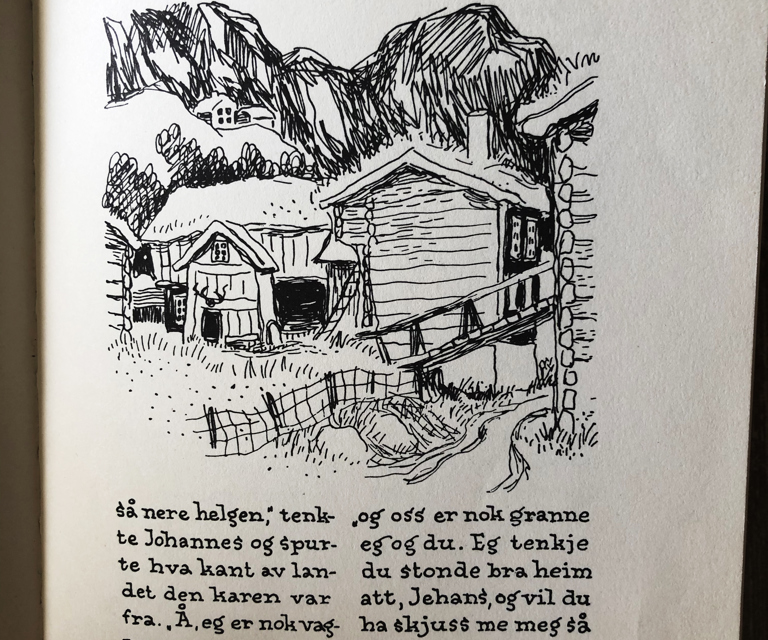 så nere helgen," tenk-
te Johannes og spur-
te hva kant av lan-
det den karen var
fra. „Å, eg er nok vag-
„og oss er nok granne
eg og du. Eg tenkje
du stonde bra heim
att, Jehans, og vil du
ha skjuss me meg så